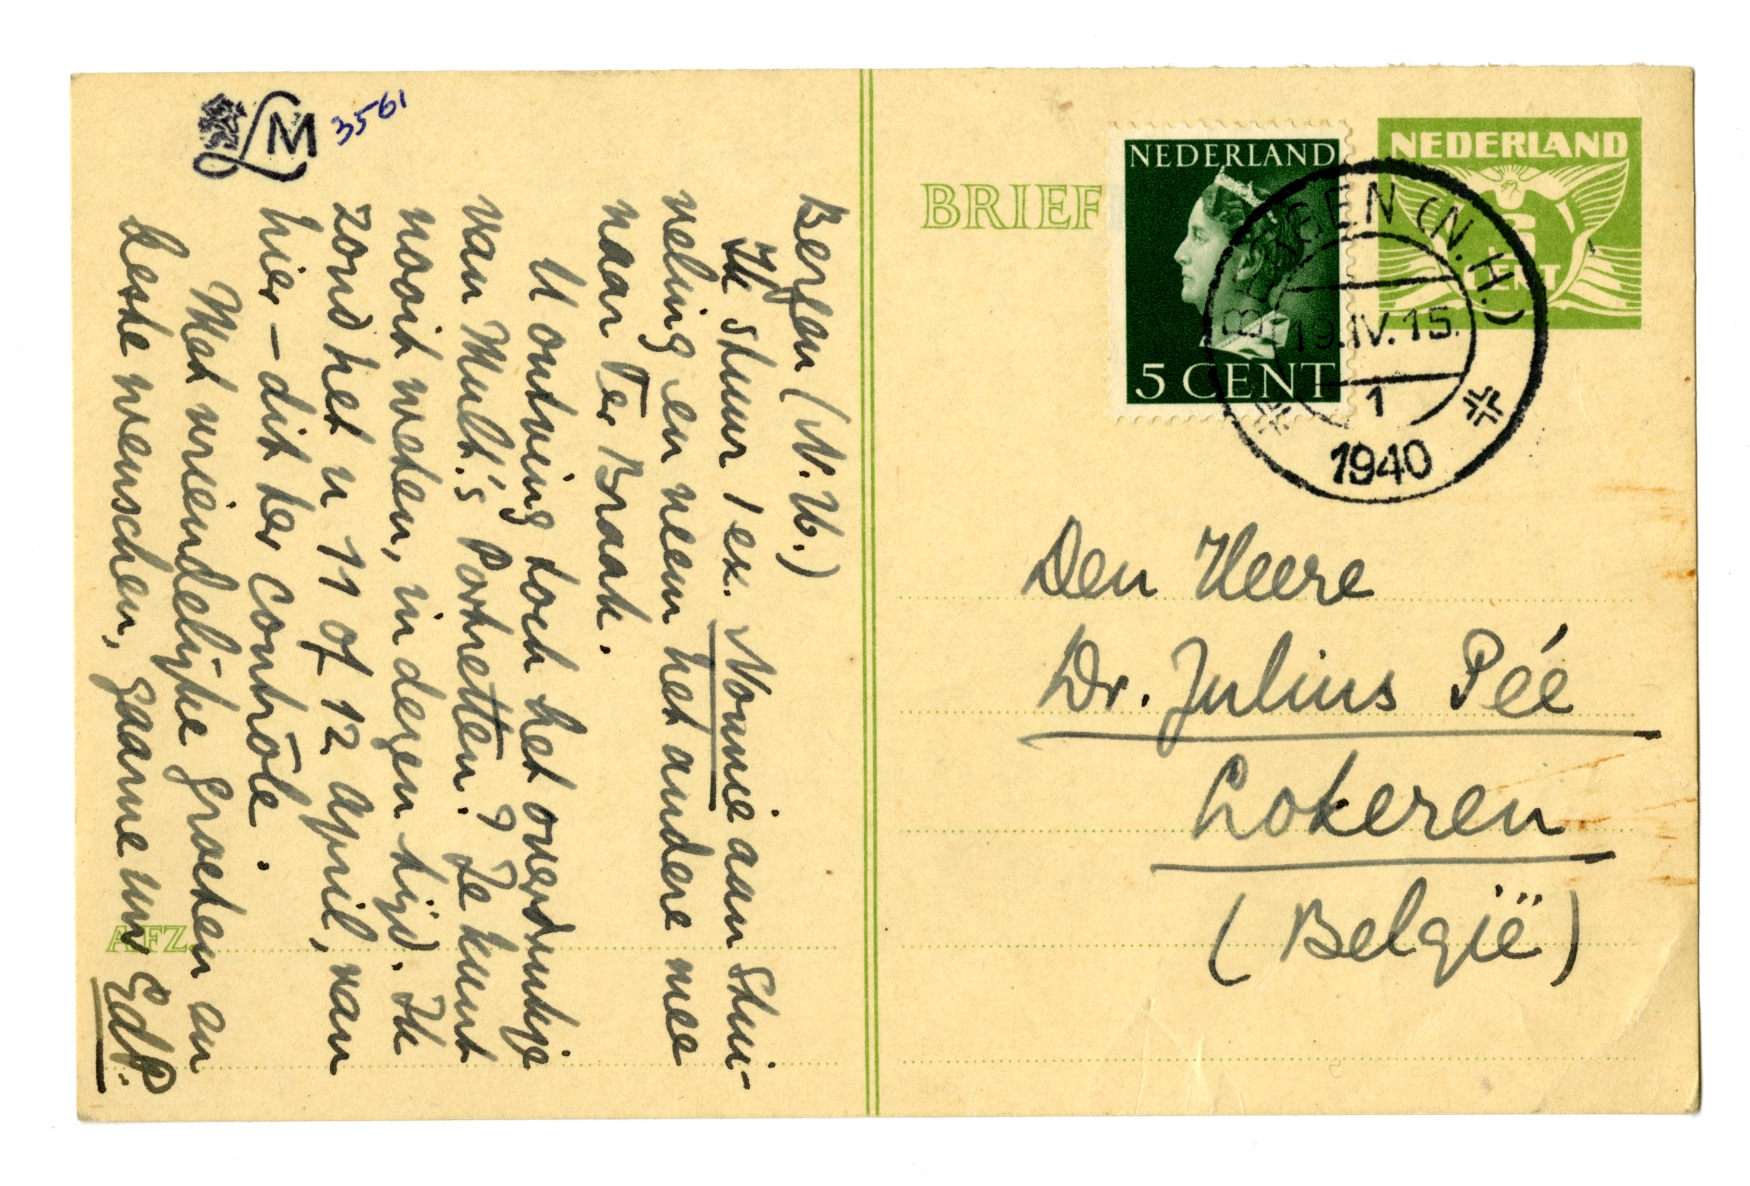 LM 3561
Bergen (N.H.)
Ik stuur 1 ex. Nonnie aan Stui-
veling en neem het andere mee
naar Ter Braak.
U ontving toch het overdrukje
van Mult.'s Portretten? Je kunt
nooit weten, in dezen tijd. Ik
zond het u 11 of 12 april, van
hier – dit ter contrôle.
Met vriendelijke groeten en
beste wenschen, gaarne uw EdP.
AFZ.
BRIEF
NEDERLAND
5 CENT
NEDERLAND
CENT
BERGEN (N.H.)
19.IV.15.
1
1940
Den Heere
Dr. Julius Pée
Lokeren
(België)